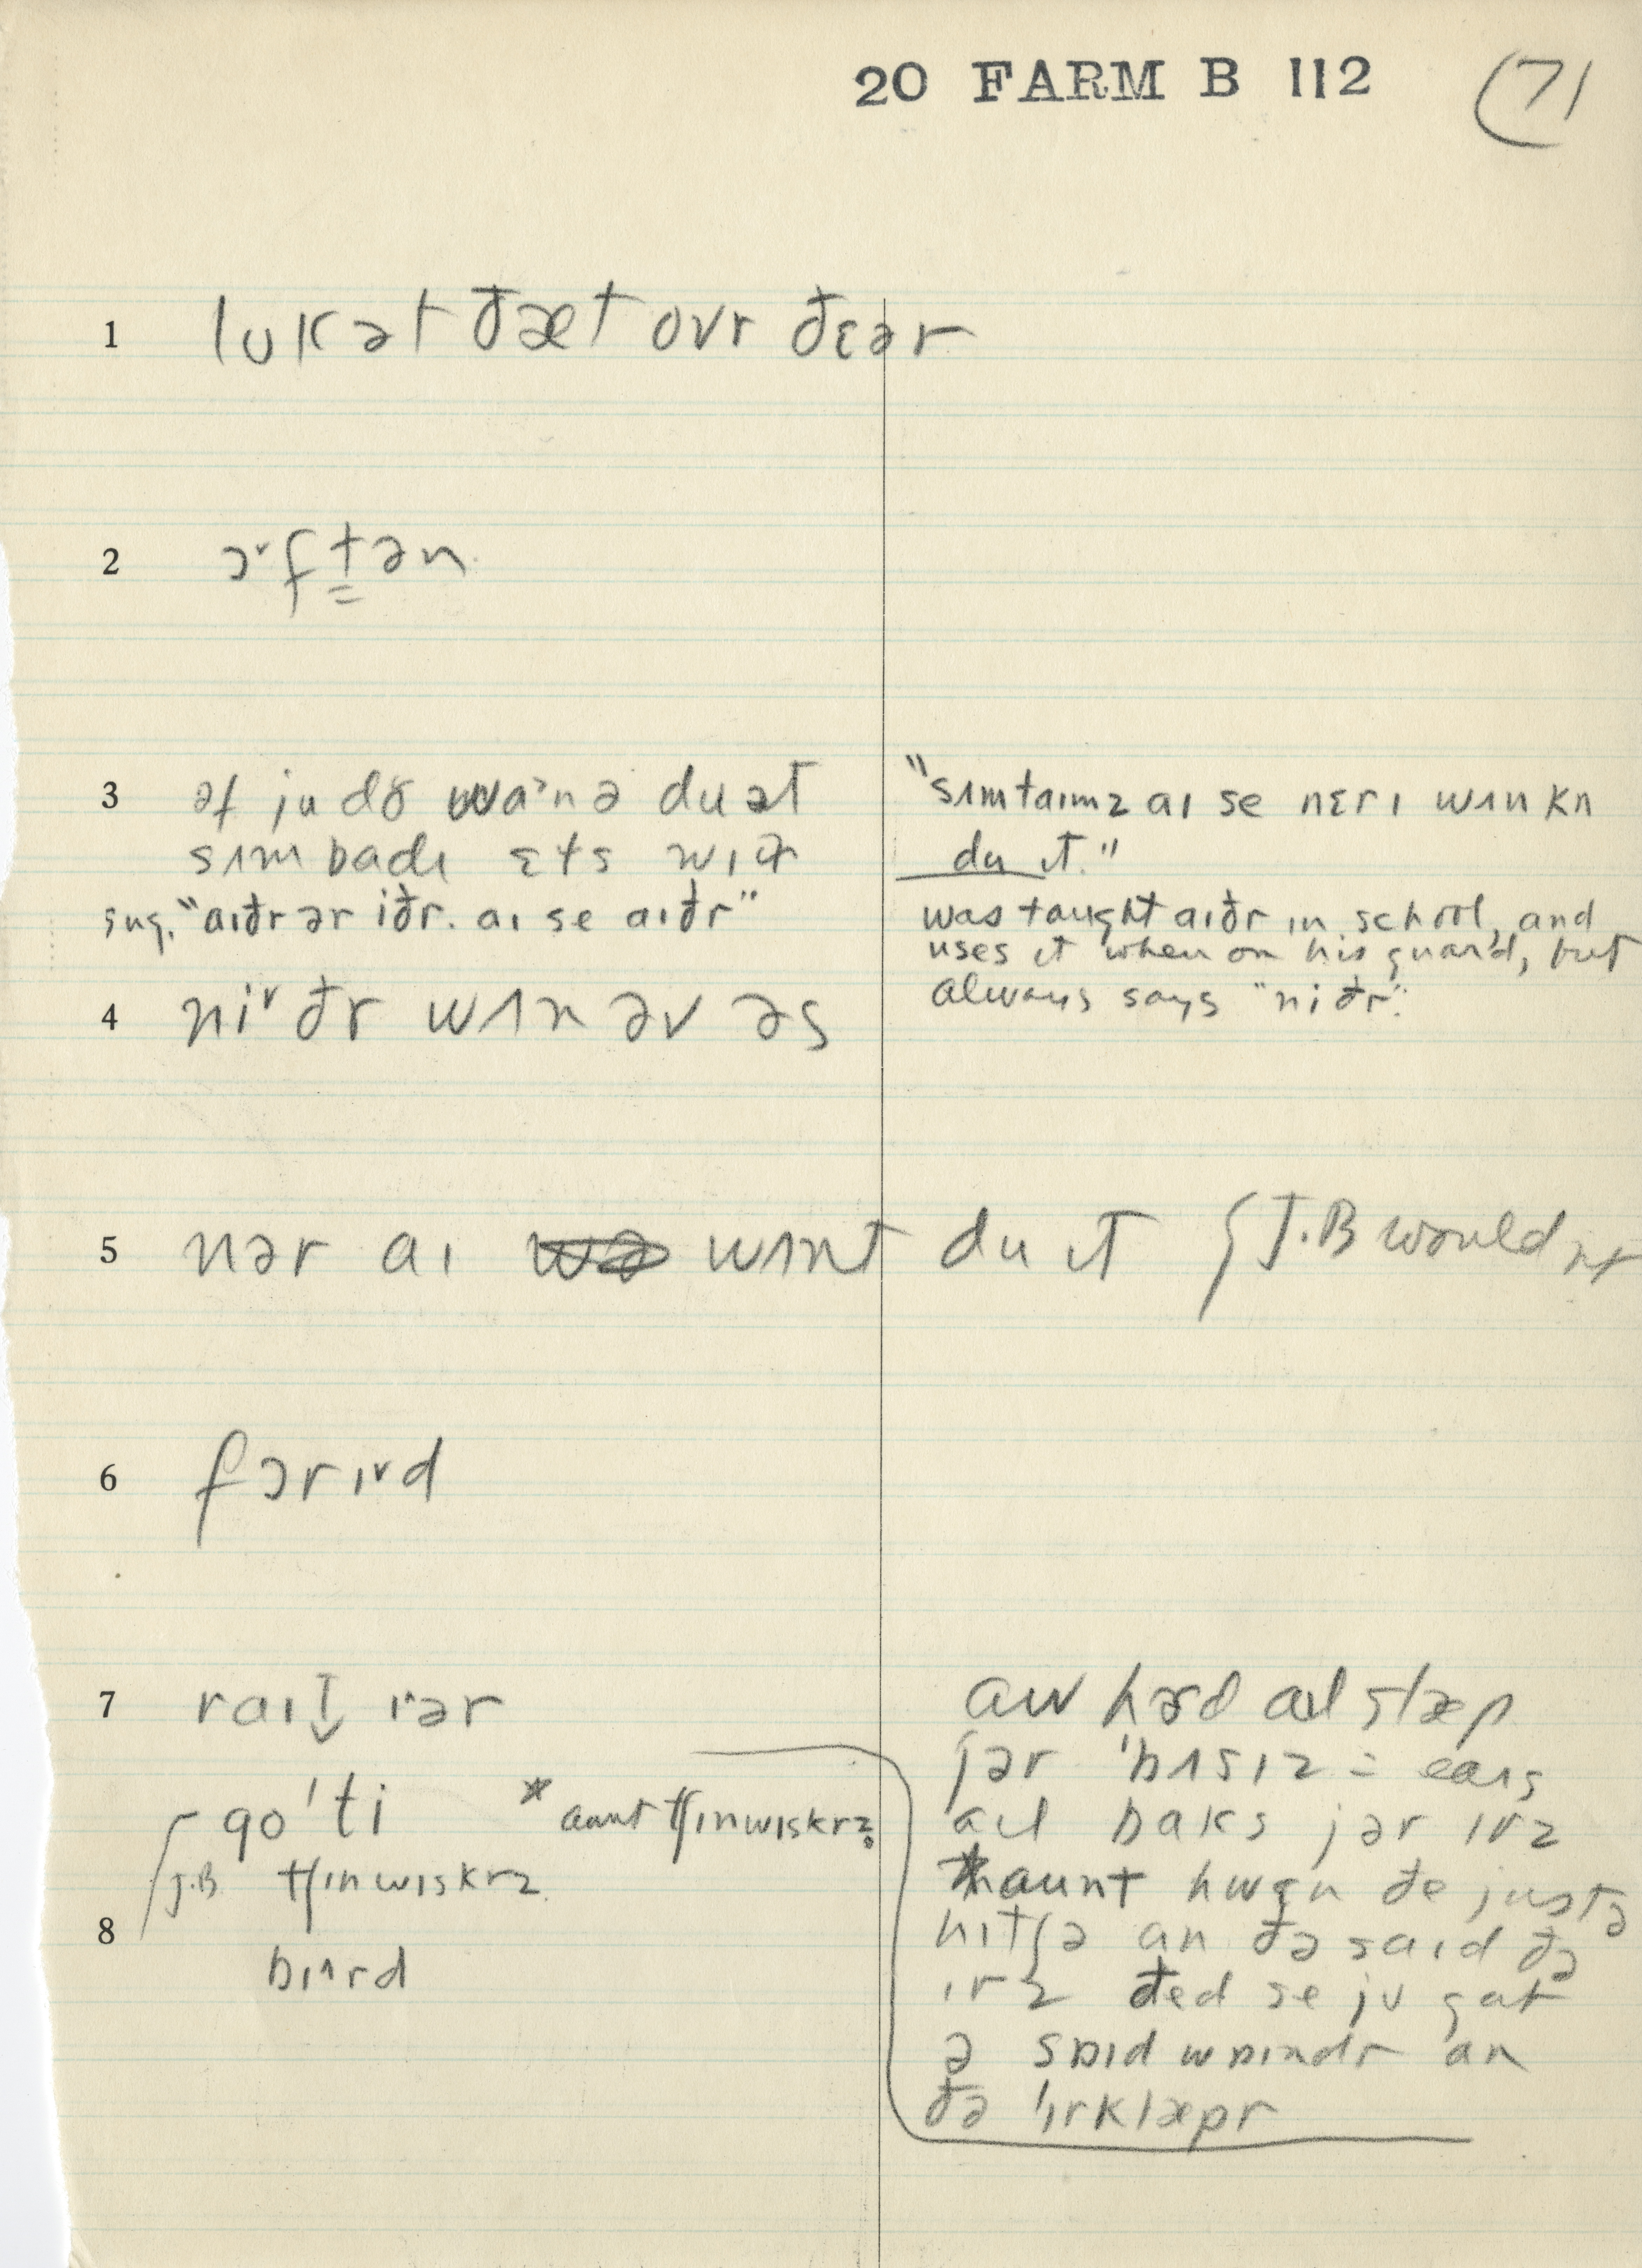 20 FARM B 112 (71
1 lʊk ət ðæt ovr ðɛər
2 ɔ˅ftən
3 əf ju dõ wa˃nə du ət
sʌmbadɪ ɛts wɪð
sug. "aɪðr ər iðr. aɪ se aɪðr"
"sʌmtaɪmz aɪ se nɛrɪ wʌn kn
du ɪt."
was taught aɪðr in school, and
uses it when on his guard, but
always says "niðr".
4 ni˅ðr wʌn əv əs
5 nər aɪ wə wʌnt du ɪt J.B would nt
6 fɔrɪ˅d
7 raɪt ɪ˅ər
aɪl slæp
jər 'bʌsɪz = ears
aɪl baks jər ɪrz
*haunt hwɛn ðe justə
hɪtʃə an ðə saɪd ðə
ɪrz ðed se jʊ gat
ə sɒɪd wɒɪndr an
ðə 'ɪrklæpr
go'ti * aunt tʃɪnwɪskrz
J.B tʃɪnwɪskrz
8 bɪ^rd